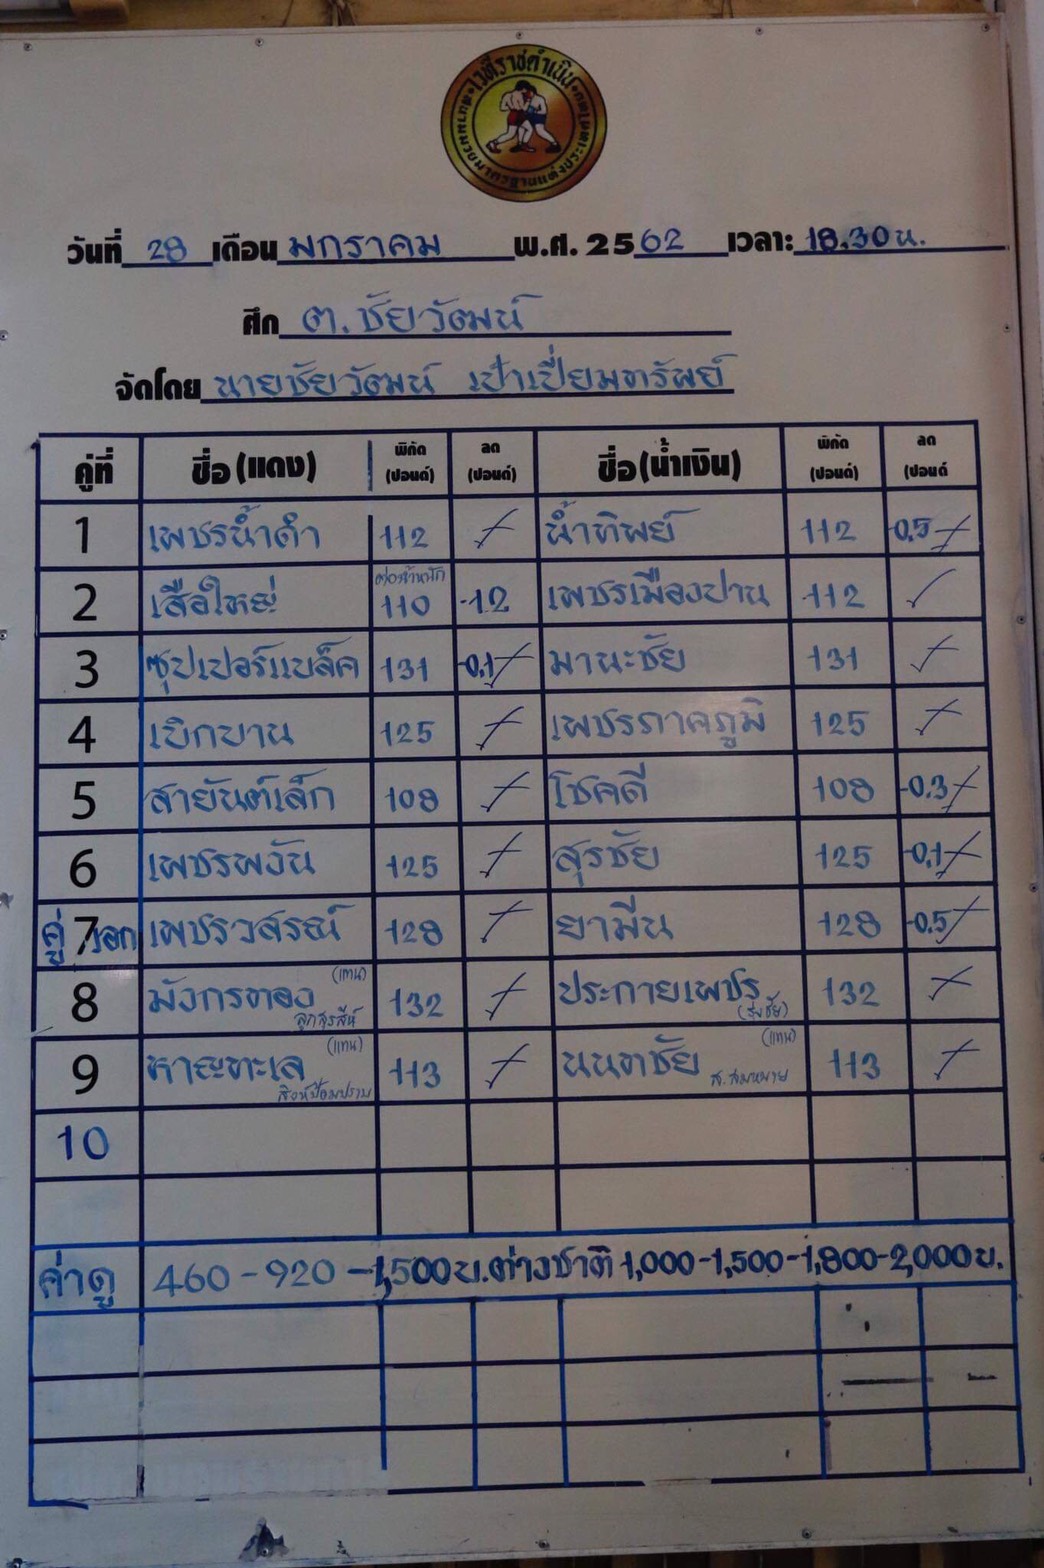 เวทีราชดำเนิน
วันที่ 28 เดือน มกราคม พ.ศ. 2562 เวลา: 18.30 น.
ศึก ต.ชัยวัฒน์
จัดโดย นายชัยวัฒน์ เป๋าเปี่ยมทรัพย์
คู่ที่ ชื่อ (แดง) พิกัด (ปอนด์) ลด (ปอนด์) ชื่อ (น้ำเงิน) พิกัด (ปอนด์) ลด (ปอนด์
1 เพชรน้ำดำ 112 น้ำทิพย์ 112 0.5
2 เสือใหญ่ ต่อน้ำหนัก 110 -1.2 เพชรเมืองปาน 112
3 ซุปเปอร์แบล็ค 131 -0.1 มานะชัย 131
4 เบิกบาน 125 เพชรภาคภูมิ 125
5 สายันต์เล็ก 108 โชคดี 108 -0.3
6 เพชรพงัน 125 สุรชัย 125 -0.1
คู่ 7 เอก เพชรวสรณ์ 128 ยามีน 128 -0.5
8 มังกรทอง (แทน) 132 ประกายเพชร 132
9 หาญทะเล (แทน) สิงห์ป้อมปราบ 113 นนทชัย (แทน) ส.สมหมาย 113
10
ค่าดู 460-920-1,500 บ. ต่างชาติ 1,000-1,500-1,800-2,000 บ.